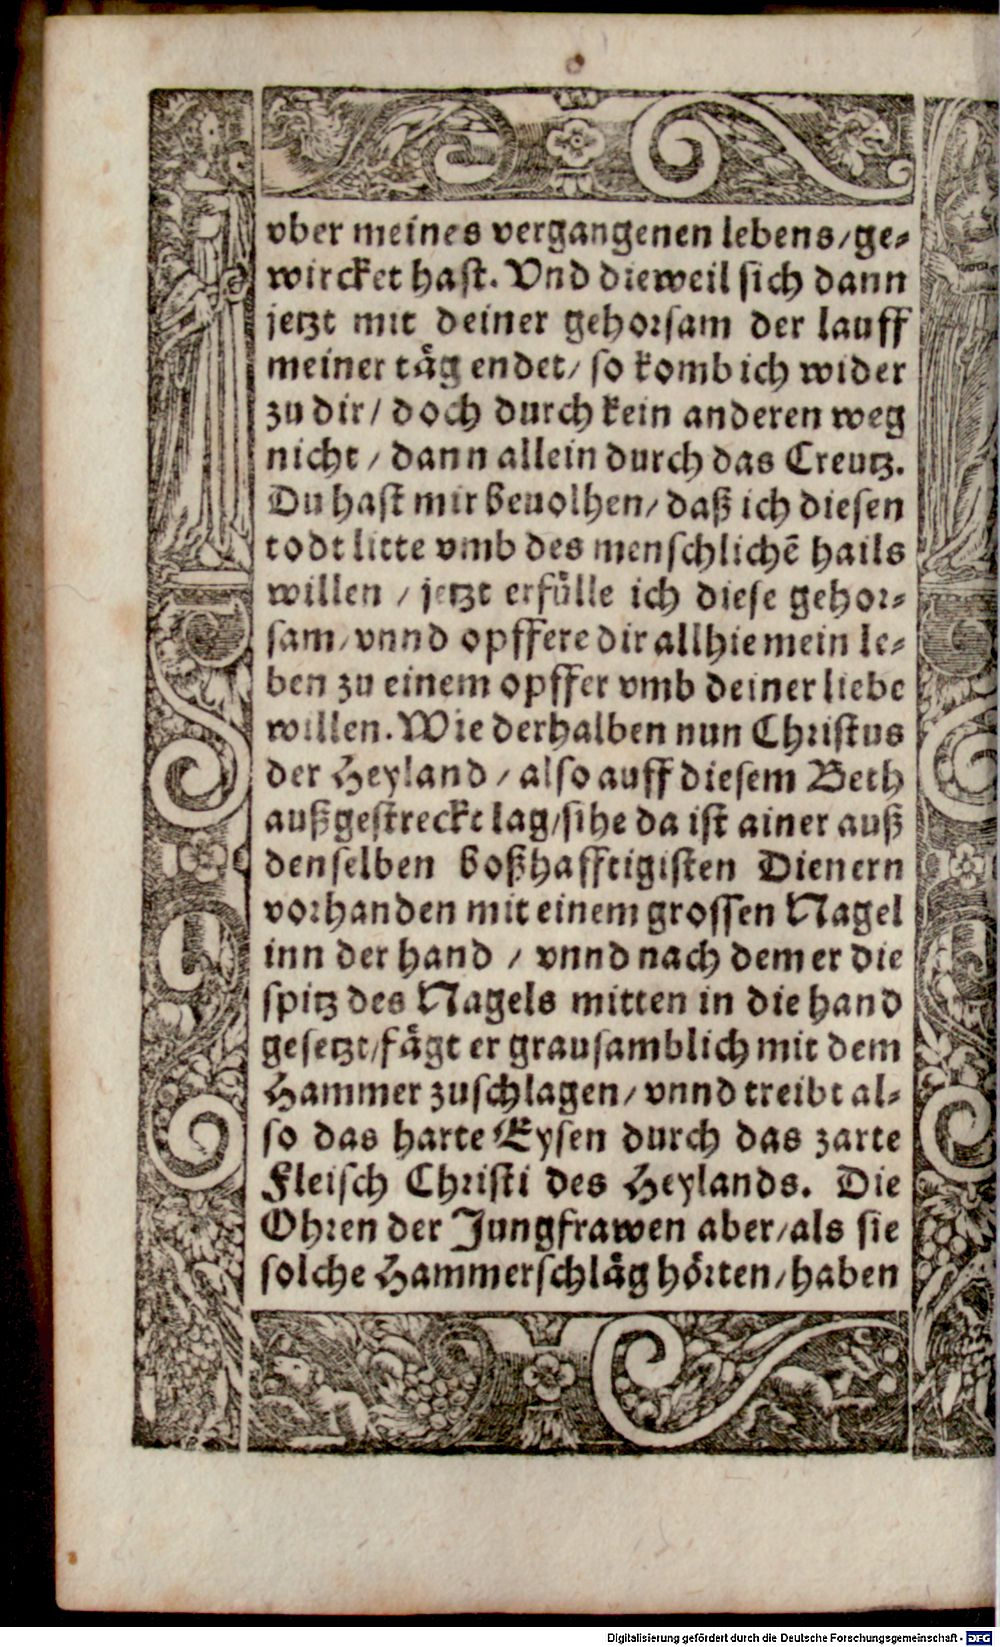 vber meines vergangenen lebens/ge⸗
wircket hast. Vnd dieweil sich dann
jetzt mit deiner gehorsam der lauff
meiner täg endet/ so komb ich wider
zu dir/ doch durch kein anderen weg
nicht / dann allein durch das Creutz.
Du hast mir beuolhen/ daß ich diesen
todt litte vmb des menschlichẽ hails
willen / jetzt erfülle ich diese gehor⸗
sam/vnnd opffere dir allhie mein le⸗
ben zu einem opffer vmb deiner liebe
willen. Wie derhalben nun Christus
der Heyland / also auff diesem Beth
außgestreckt lag/sihe da ist ainer auß
denselben boßhafftigisten Dienern
vorhanden mit einem grossen Nagel
inn der hand / vnnd nach dem er die
spitz des Nagels mitten in die hand
gesetzt/fägt er grausamblich mit dem
Hammer zuschlagen/ vnnd treibt al⸗
so das harte Eysen durch das zarte
Fleisch Christi des Heylands. Die
Ohren der Jungfrawen aber/als sie
solche Hammerschläg hörten/haben
Digitalisierung gefördert durch die Deutsche Forschungsgemeinschaft - DFG